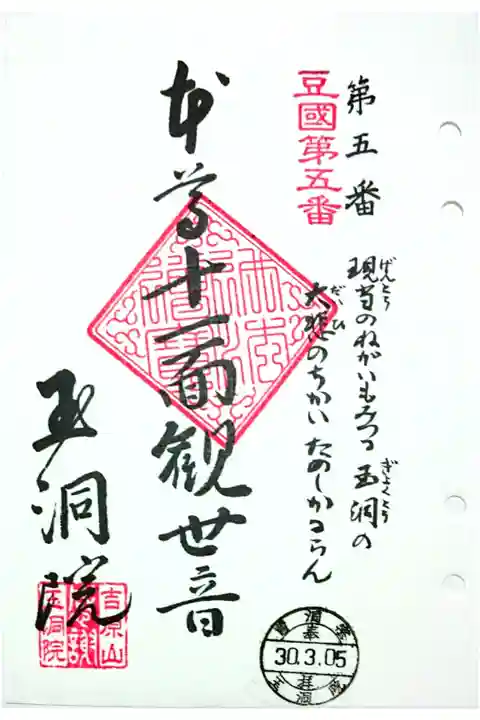 第五番
豆國第五番
現当のねがいもみつつ玉洞の
げんとう
ぎょくとう
大悲のちかいたのしかるらん
だいひ
本尊十一面観世音
玉洞院
吉原山
玉洞院
奉拝
30.3.05
玉洞院